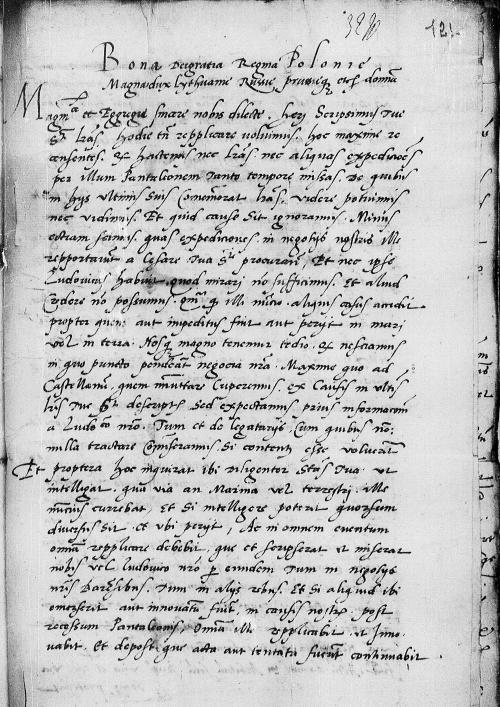 121
Bona Dei gratia Regina Polonie
Magnadux Lythuanie Russie, prussieq, etc, domina
Magca et Egregie sincere nobis dilecte, hery scripsimus Tue
Sti lras, hodie tn replicare voluimus, hoc maxime re
censentes, q hactenus nec lras, nec aliquas expeditiões
per illum Pantaleonem tanto tempore missas, De quibus
in hys ultimis suis comemorat lris, videre potuimus
nec vidimus, Et quid cause sit ignoramus, Minus
etiam scimus, quas expeditiones, in negotys nostris ille
reportavit a Cesare Tua Ste procurante, Et nec ipse
Ludovicus habuit, quod mirari nõ sufficimus, Et aliud
credere nõ possumus, qm q ille nuncio, Aliquis casus accidit
propter quem, aut impeditus fuit, aut perijt in mari
vel in terra, Nosq magno tenemur tedio, q nesciamus
in quo puncto pendeant negocia nra, Maxime quo ad
Castellanum, quem imutare cuperemus, ex causis in ultis
lris Tue Sti descriptis, Sed expectamus prius informationem
a Ludovico nro, Tum et de legatarys, cum quibus no
nulla tractare comiseramus, Si contenti esse voluerint
Et propterea hoc inquirat ibi diligenter Stas Tua, ut
intelligat, qua via an Marina vel terrestri, ille
nuncius currebat, Et si intelligere poterit quorsum
diversus sit, et ubi perijt, Ac in omnem eventum
omnia replicare debebit, que et scripserat et miserat
nobis vel Ludovico nro p eundem tum in negotys
nris Barensibus, tum in alys rebus, Et si aliquid ibi
emerserit aut innovatum fuerit, in causis nostris, post
recessum Pantaleonis, Omnia ille replicabit et Inno
vabit, Et deposit que acta aut tentata fuerint continuabit